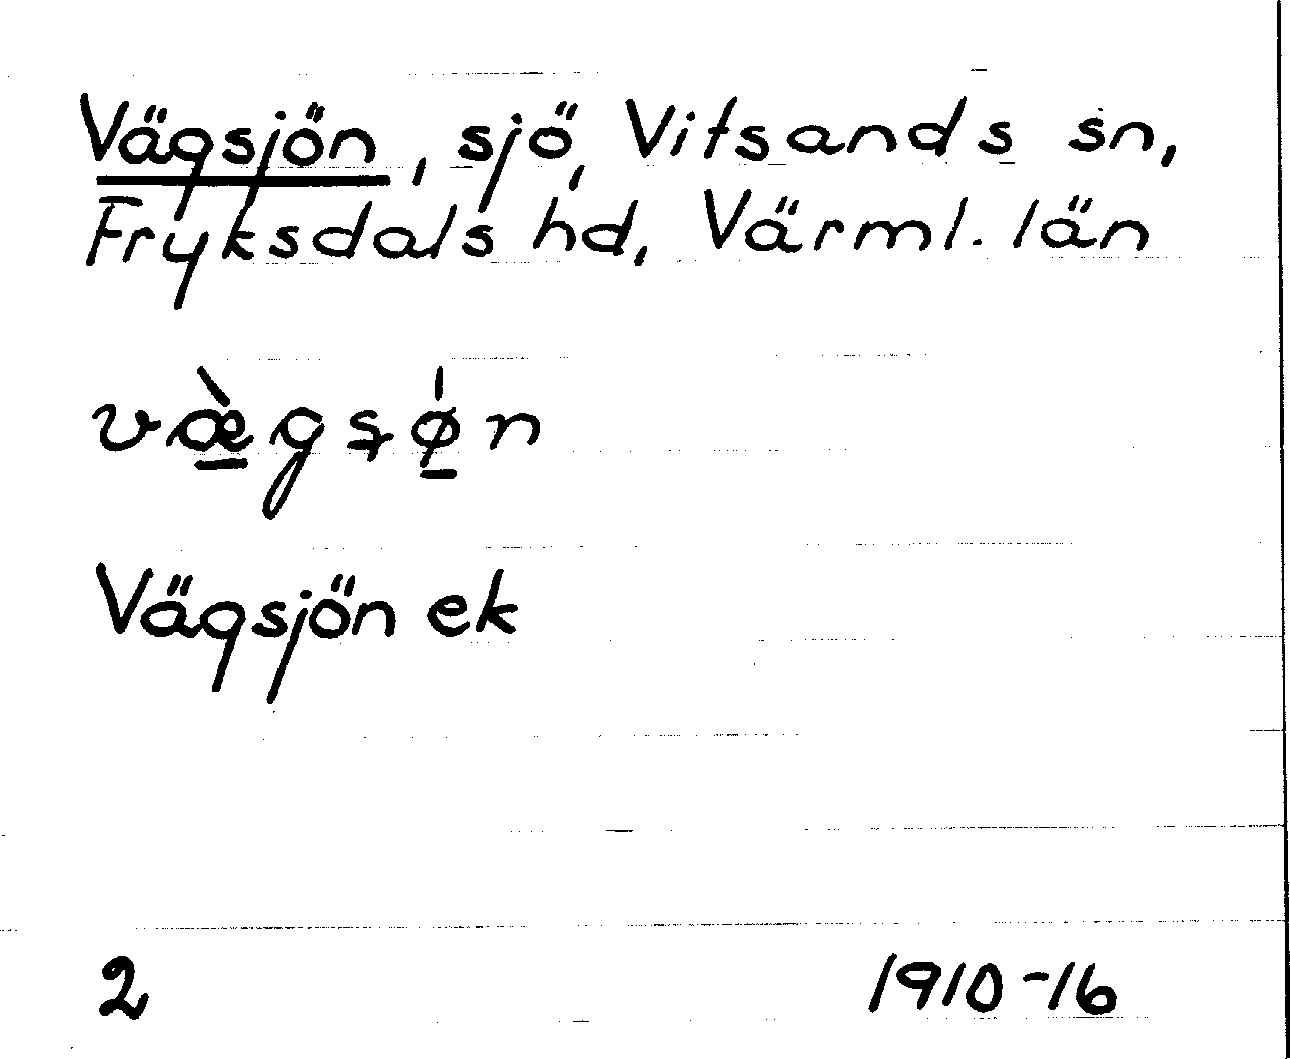 Vägsjön, sjö, Vitsands sn,
Fryksdals hd, Värml. län
væ̠̀gʂǿ̠n
Vägsjön ek
2 1910-16